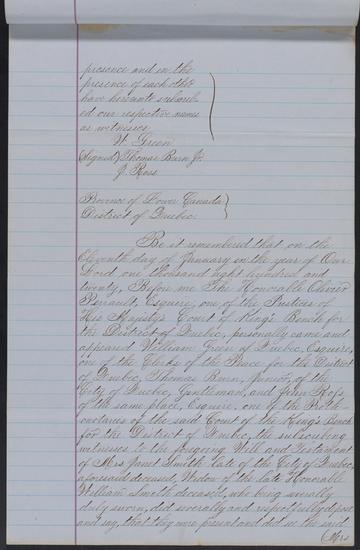 presence and in the
presence of each other
have hereunto subscrib-
ed our respective names
as witnesses
W. Green
(Signed) Thomas Burn Jr.
J. Ross
Province of Lower Canada
District of Quebec.
Be it remembered that on the
Eleventh day of January in the year of Our
Lord one thousand eight hundred and
twenty, Before me The Honorable Olivier
Perrault, Esquire, one of the Justices of
His Majesty's Court of King's Bench for
the District of Quebec, personally came and
appeared William Green of Quebec, Esquire,
one of the Clerks of the Peace for the District
of Quebec, Thomas Burn, Junior, of the
City of Quebec, Gentleman, and John Ross
of the same place, Esquire, one of the Proth-
onotaries of the said Court of the King's Bench
for the District of Quebec, the subscribing
witnesses to the foregoing Will and Testament
of Mrs Janet Smith late of the City of Quebec,
aforesaid deceased, Widow of the late Honorable
William Smith deceased, who being severally
duly sworn, did severally and respectfully depose
and say, that they were present and did see the said
Mrs